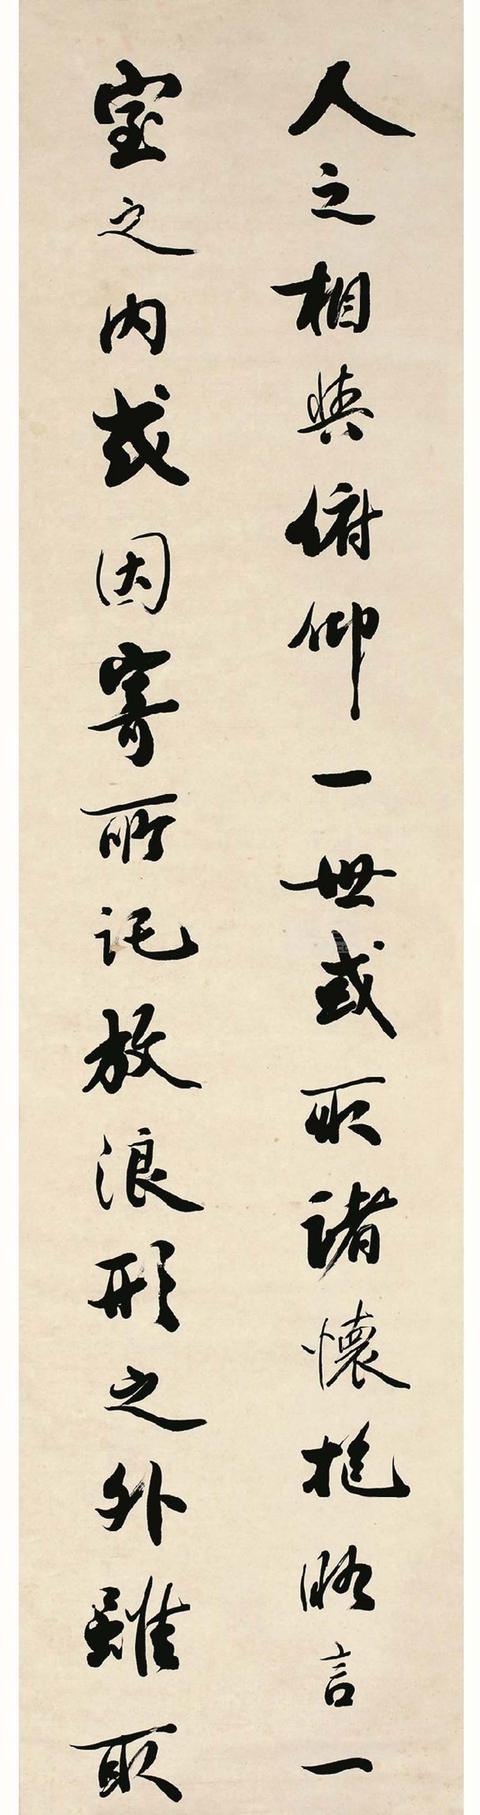 人之相與俯仰一世或取諸懷抱晤言一
室之内或因寄所託放浪形之外雖取